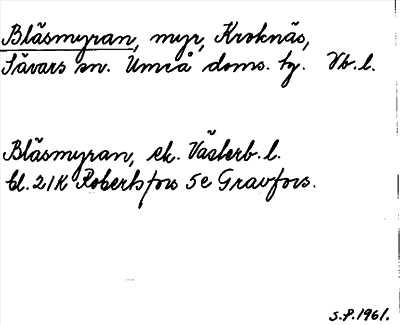 Bläsmyran, myr, Kroknäs,
Sävars sn. Umeå doms. tg. Vb. l.
Bläsmyran, ek. Västerb. l.
bl. 21K Robertsfors 5e Gravfors.
S.P. 1961.